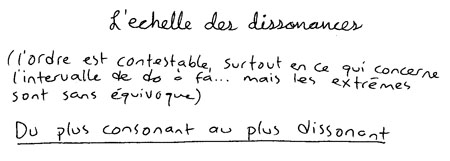 L'echelle des dissonances
(l'ordre est contestable, surtout en ce qui concerne
l'intervalle de do à fa... mais les extrêmes
sont sans équivoque)
Du plus consonant au plus dissonant